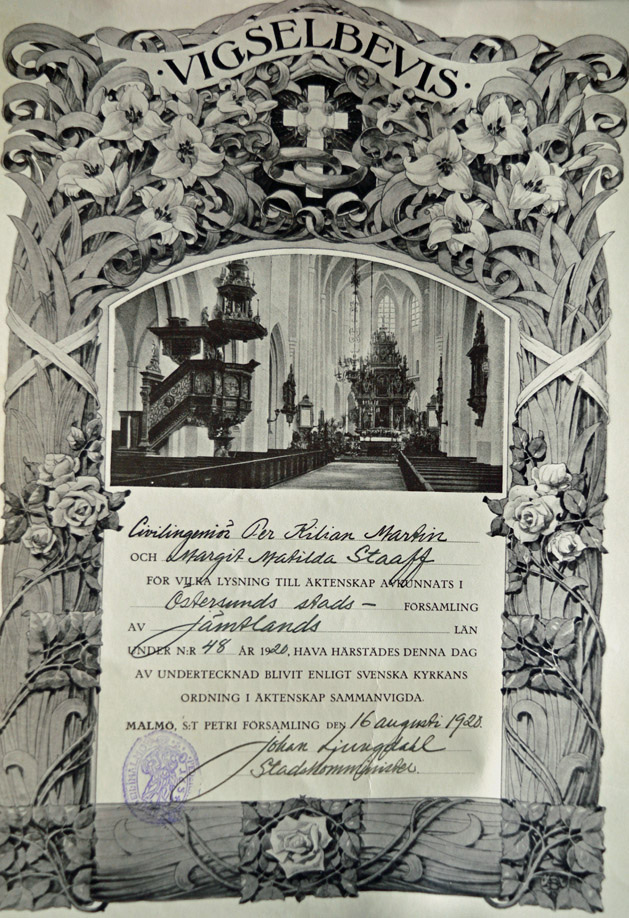 ·VIGSELBEVIS·
Civilingeniör Per Kilian Martin
OCH Margit Matilda Staaff
FÖR VILKA LYSNING TILL ÄKTENSKAP AVKUNNATS I
Östersunds stads – FÖRSAMLING
AV Jämtlands LÄN
UNDER N:R 48 ÅR 1920, HAVA HÄRSTÄDES DENNA DAG
AV UNDERTECKNAD BLIVIT ENLIGT SVENSKA KYRKANS
ORDNING I ÄKTENSKAP SAMMANVIGDA.
MALMÖ, S:T PETRI FÖRSAMLING DEN 16 augusti 1920.
Johan Ljungdahl
Stadskomminister.